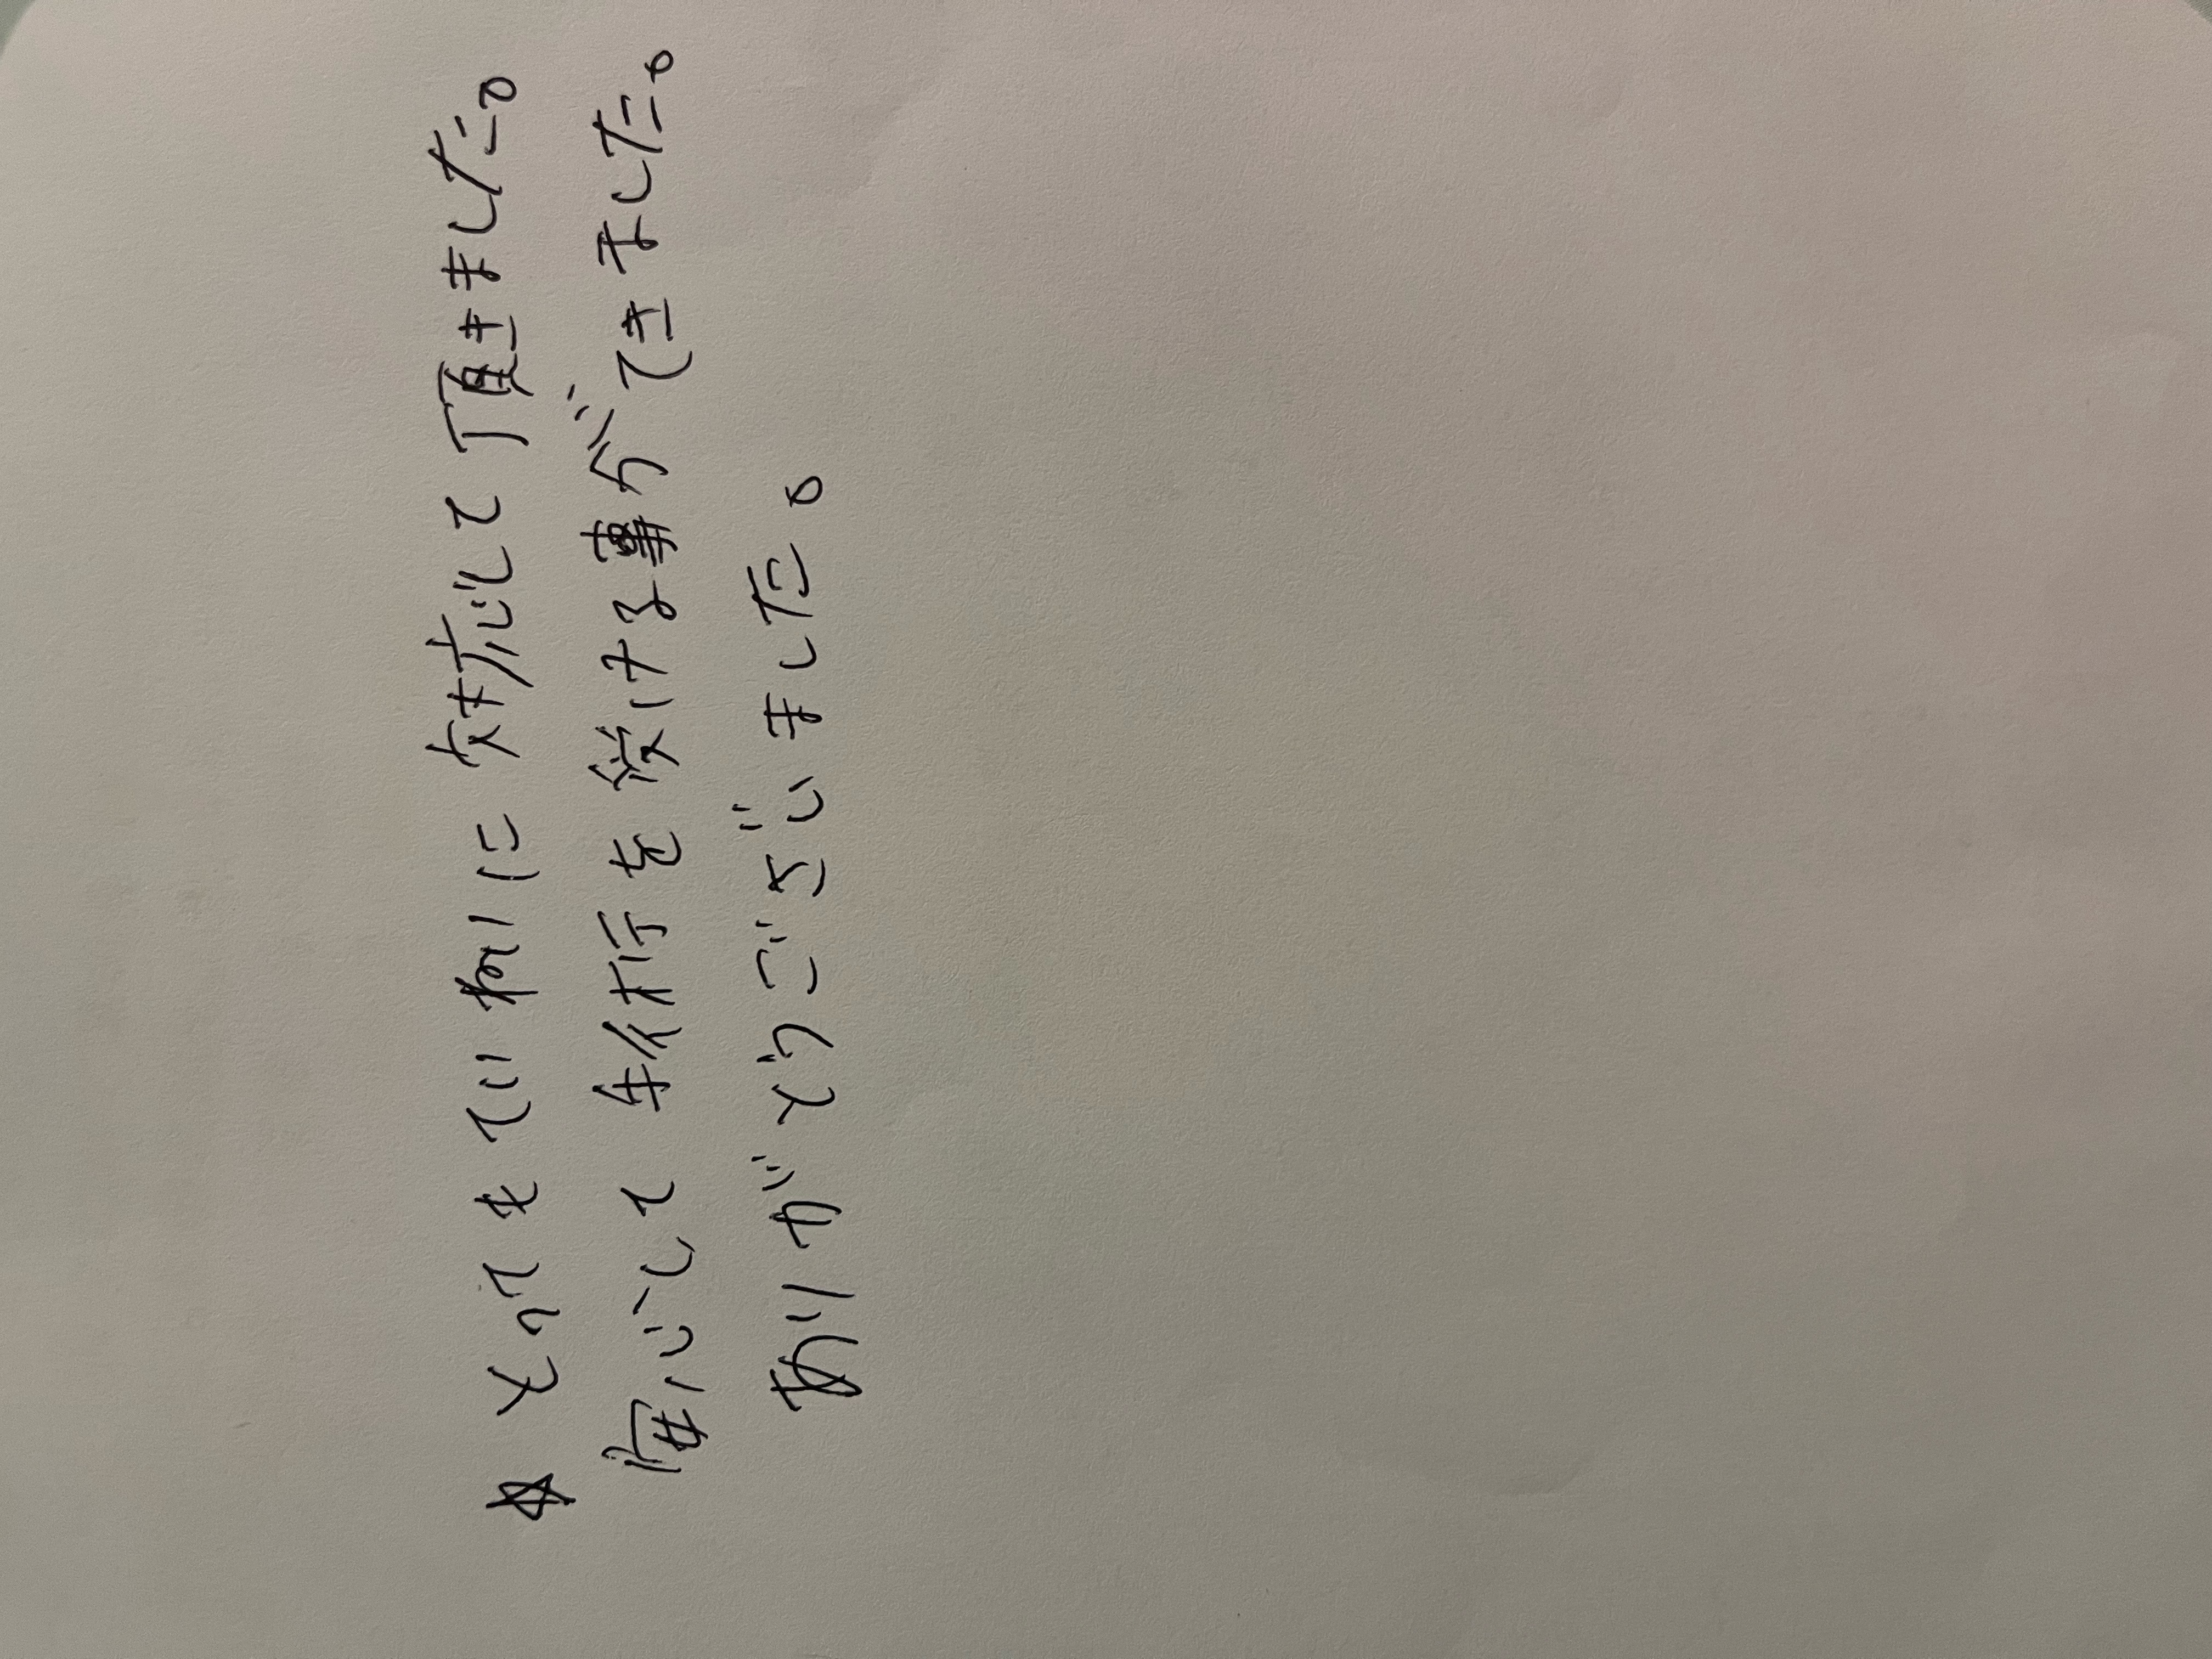 ☆とってもていねいに対応して頂きました。
手術を受ける事ができました。
ありがとうございました。